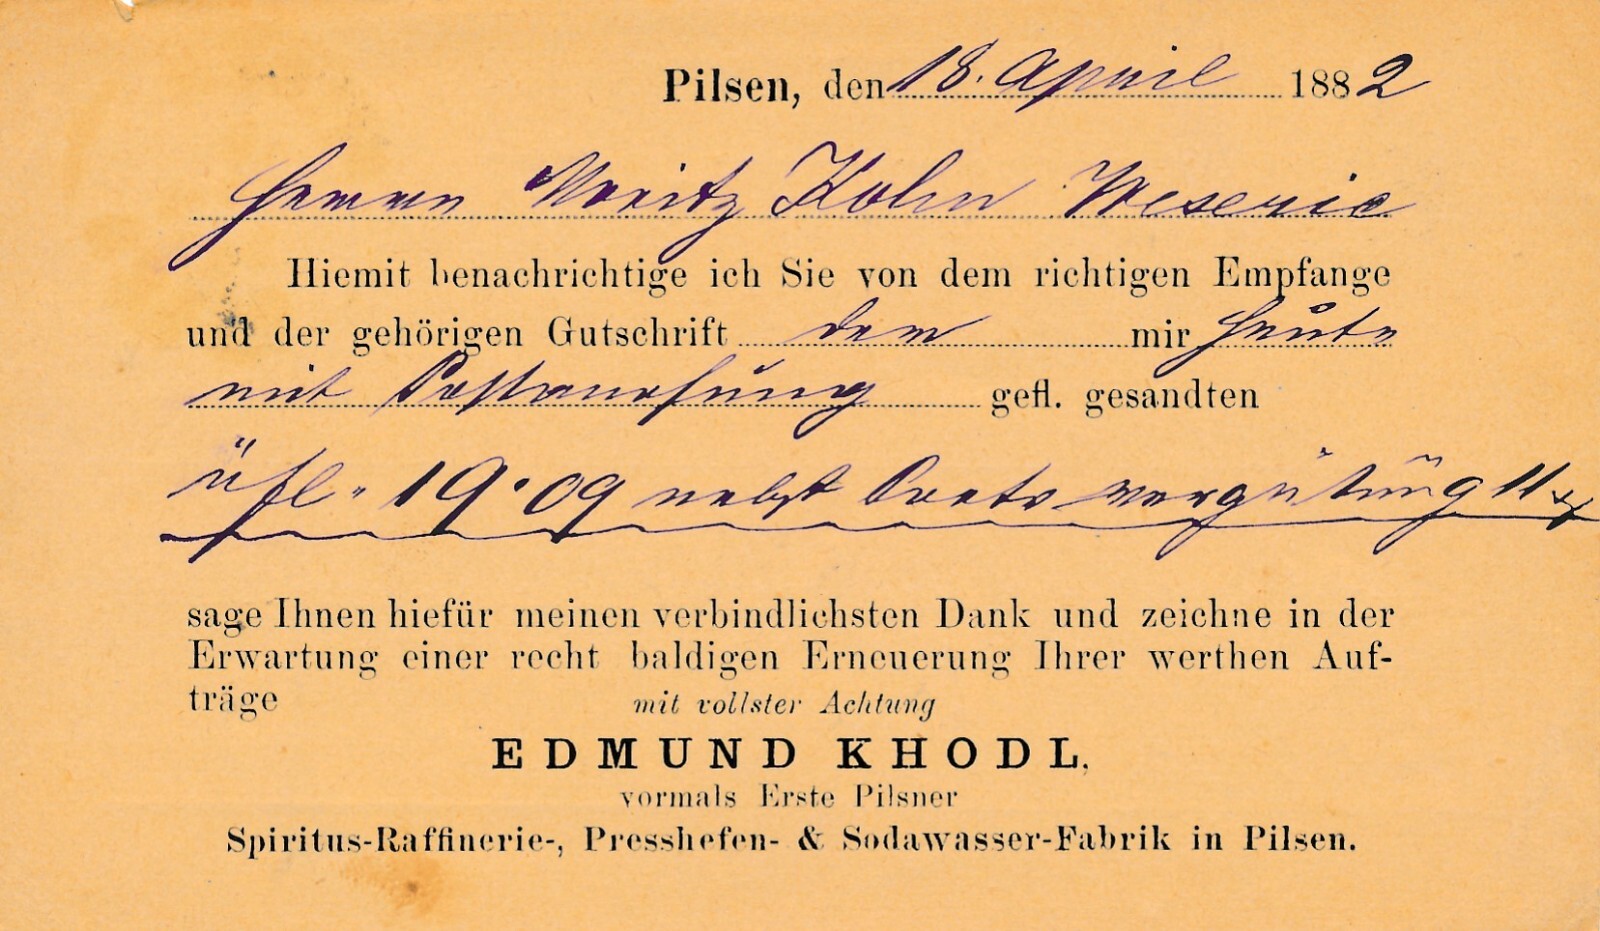 Pilsen, den 18. April 1882
Herrn Moritz Kohn Weseric
Hiemit benachrichtige ich Sie von dem richtigen Empfange
und der gehörigen Gutschrift dem mir heute
mit Postanweisung gefl. gesandten
öfl. 19·09 nebst Porto vergütung 11 x
sage Ihnen hiefür meinen verbindlichsten Dank und zeichne in der
Erwartung einer recht baldigen Erneuerung Ihrer werthen Auf-
träge mit vollster Achtung
EDMUND KHODL,
vormals Erste Pilsner
Spiritus-Raffinerie-, Presshefen- & Sodawasser-Fabrik in Pilsen.